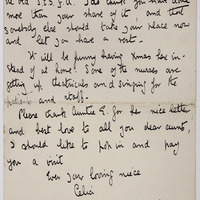 an old S.S.F.A. I do think you have done
more than your share of it, and that
somebody else should take your place now
and let you have a rest.
It will be funny having Xmas here in-
stead of at home. Some of the nurses are
getting up theatricals and singing for the
patients and staff.
Please thank Auntie E. for her nice letter
and best love to all you dear aunt,
I should like to pop in and pay
you a visit
Ever your loving niece
Celia